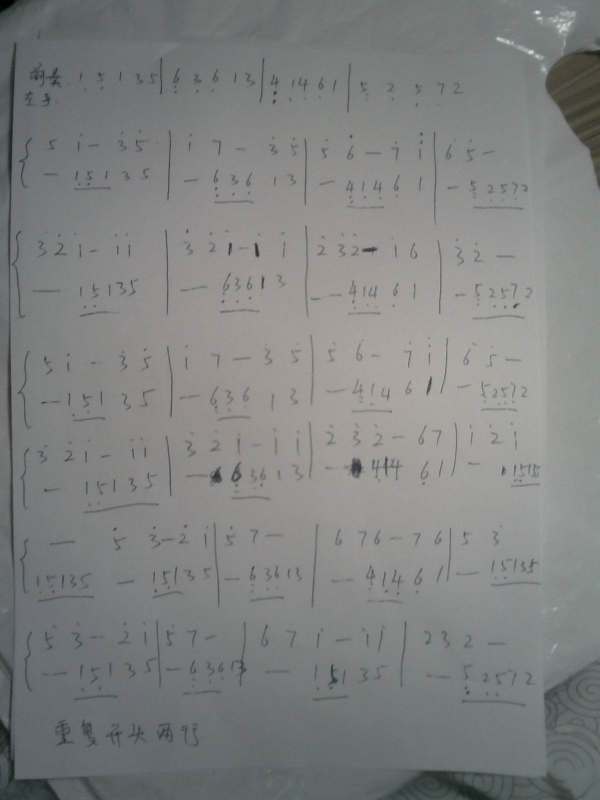 前奏 1 5 1 3 5 | 6 3 6 1 3 | 4 1 4 6 1 | 5 2 5 7 2
左手
5 i - 3 5 | i 7 - 3 5 | 5 6 - 7 i | 6 5 -
- 1 5 1 3 5 | - 6 3 6 1 3 | - 4 1 4 6 1 | - 5 2 5 7 2
3 2 i - i i | 3 2 i - i i | 2 3 2 - i 6 | 3 2 -
- 1 5 1 3 5 | - 6 3 6 1 3 | - - 4 1 4 6 1 | - 5 2 5 7 2
5 i - 3 5 | i 7 - 3 5 | 5 6 - 7 i | 6 5 -
- 1 5 1 3 5 | - 6 3 6 1 3 | - 4 1 4 6 1 | - 5 2 5 7 2
3 2 i - i i | 3 2 i - i i | 2 3 2 - 6 7 | i 2 i
- 1 5 1 3 5 | - 6 3 6 1 3 | - 4 1 4 6 1 | - 1 5 1 5
- 5 3 - 2 i | 5 7 - | 6 7 6 - 7 6 | 5 3
1 5 1 3 5 - 1 5 1 3 5 | - 6 3 6 1 3 | - - 4 1 4 6 1 | - 1 5 1 3 5
5 3 - 2 i | 5 7 - | 6 7 i - i i | 2 3 2 -
- 1 5 1 3 5 | - 6 3 6 1 3 | - 1 5 1 3 5 | - - 5 2 5 7 2
重复开头两行